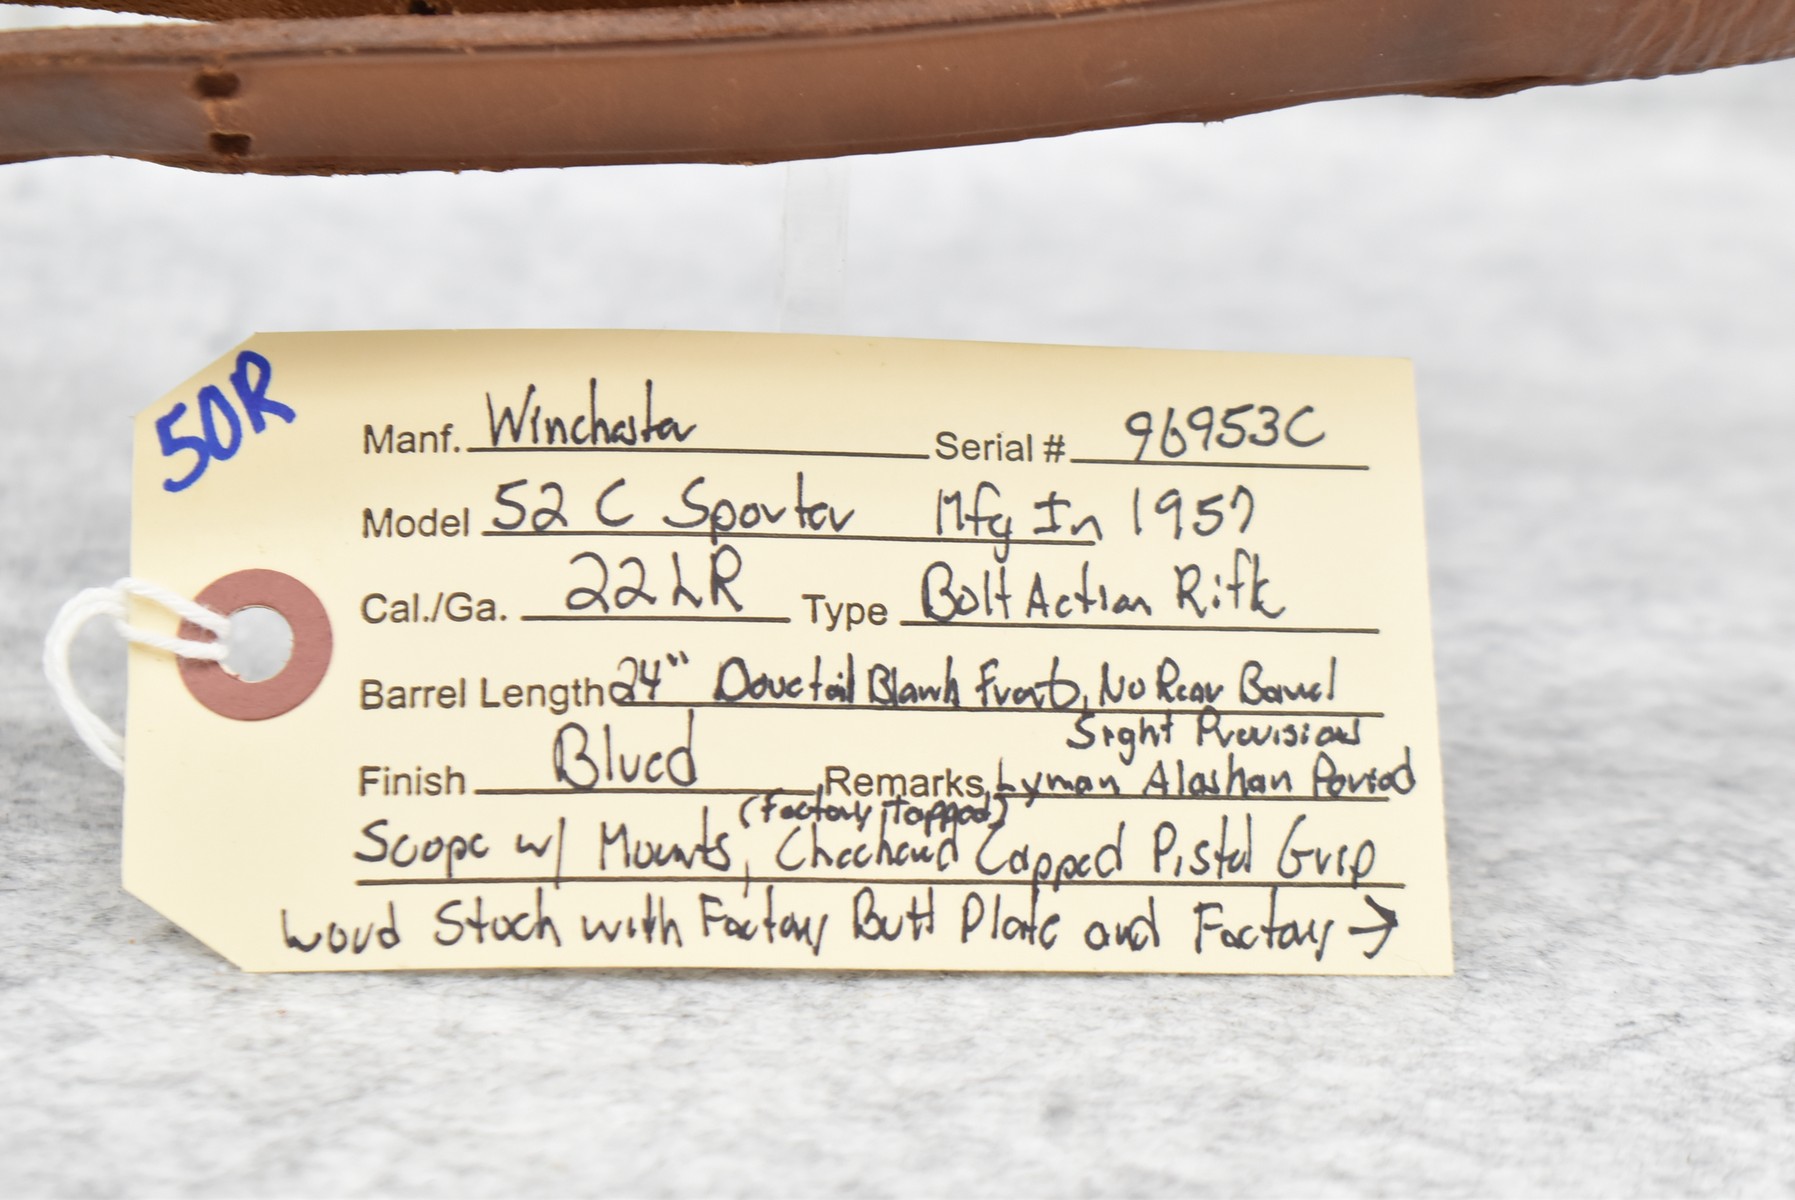 50R
Manf. Winchester Serial # 96953C
Model 52 C Sporter Mfg In 1957
Cal./Ga. 22 LR Type Bolt Action Rifle
Barrel Length 24" Dovetail Blank Front, No Rear Barrel
Sight Provisions
Finish Blued Remarks Lyman Alaskan Period
(Factory Tapped)
Scope w/ Mounts, Checkered Capped Pistol Grip
Wood Stock with Factory Butt Plate and Factory →